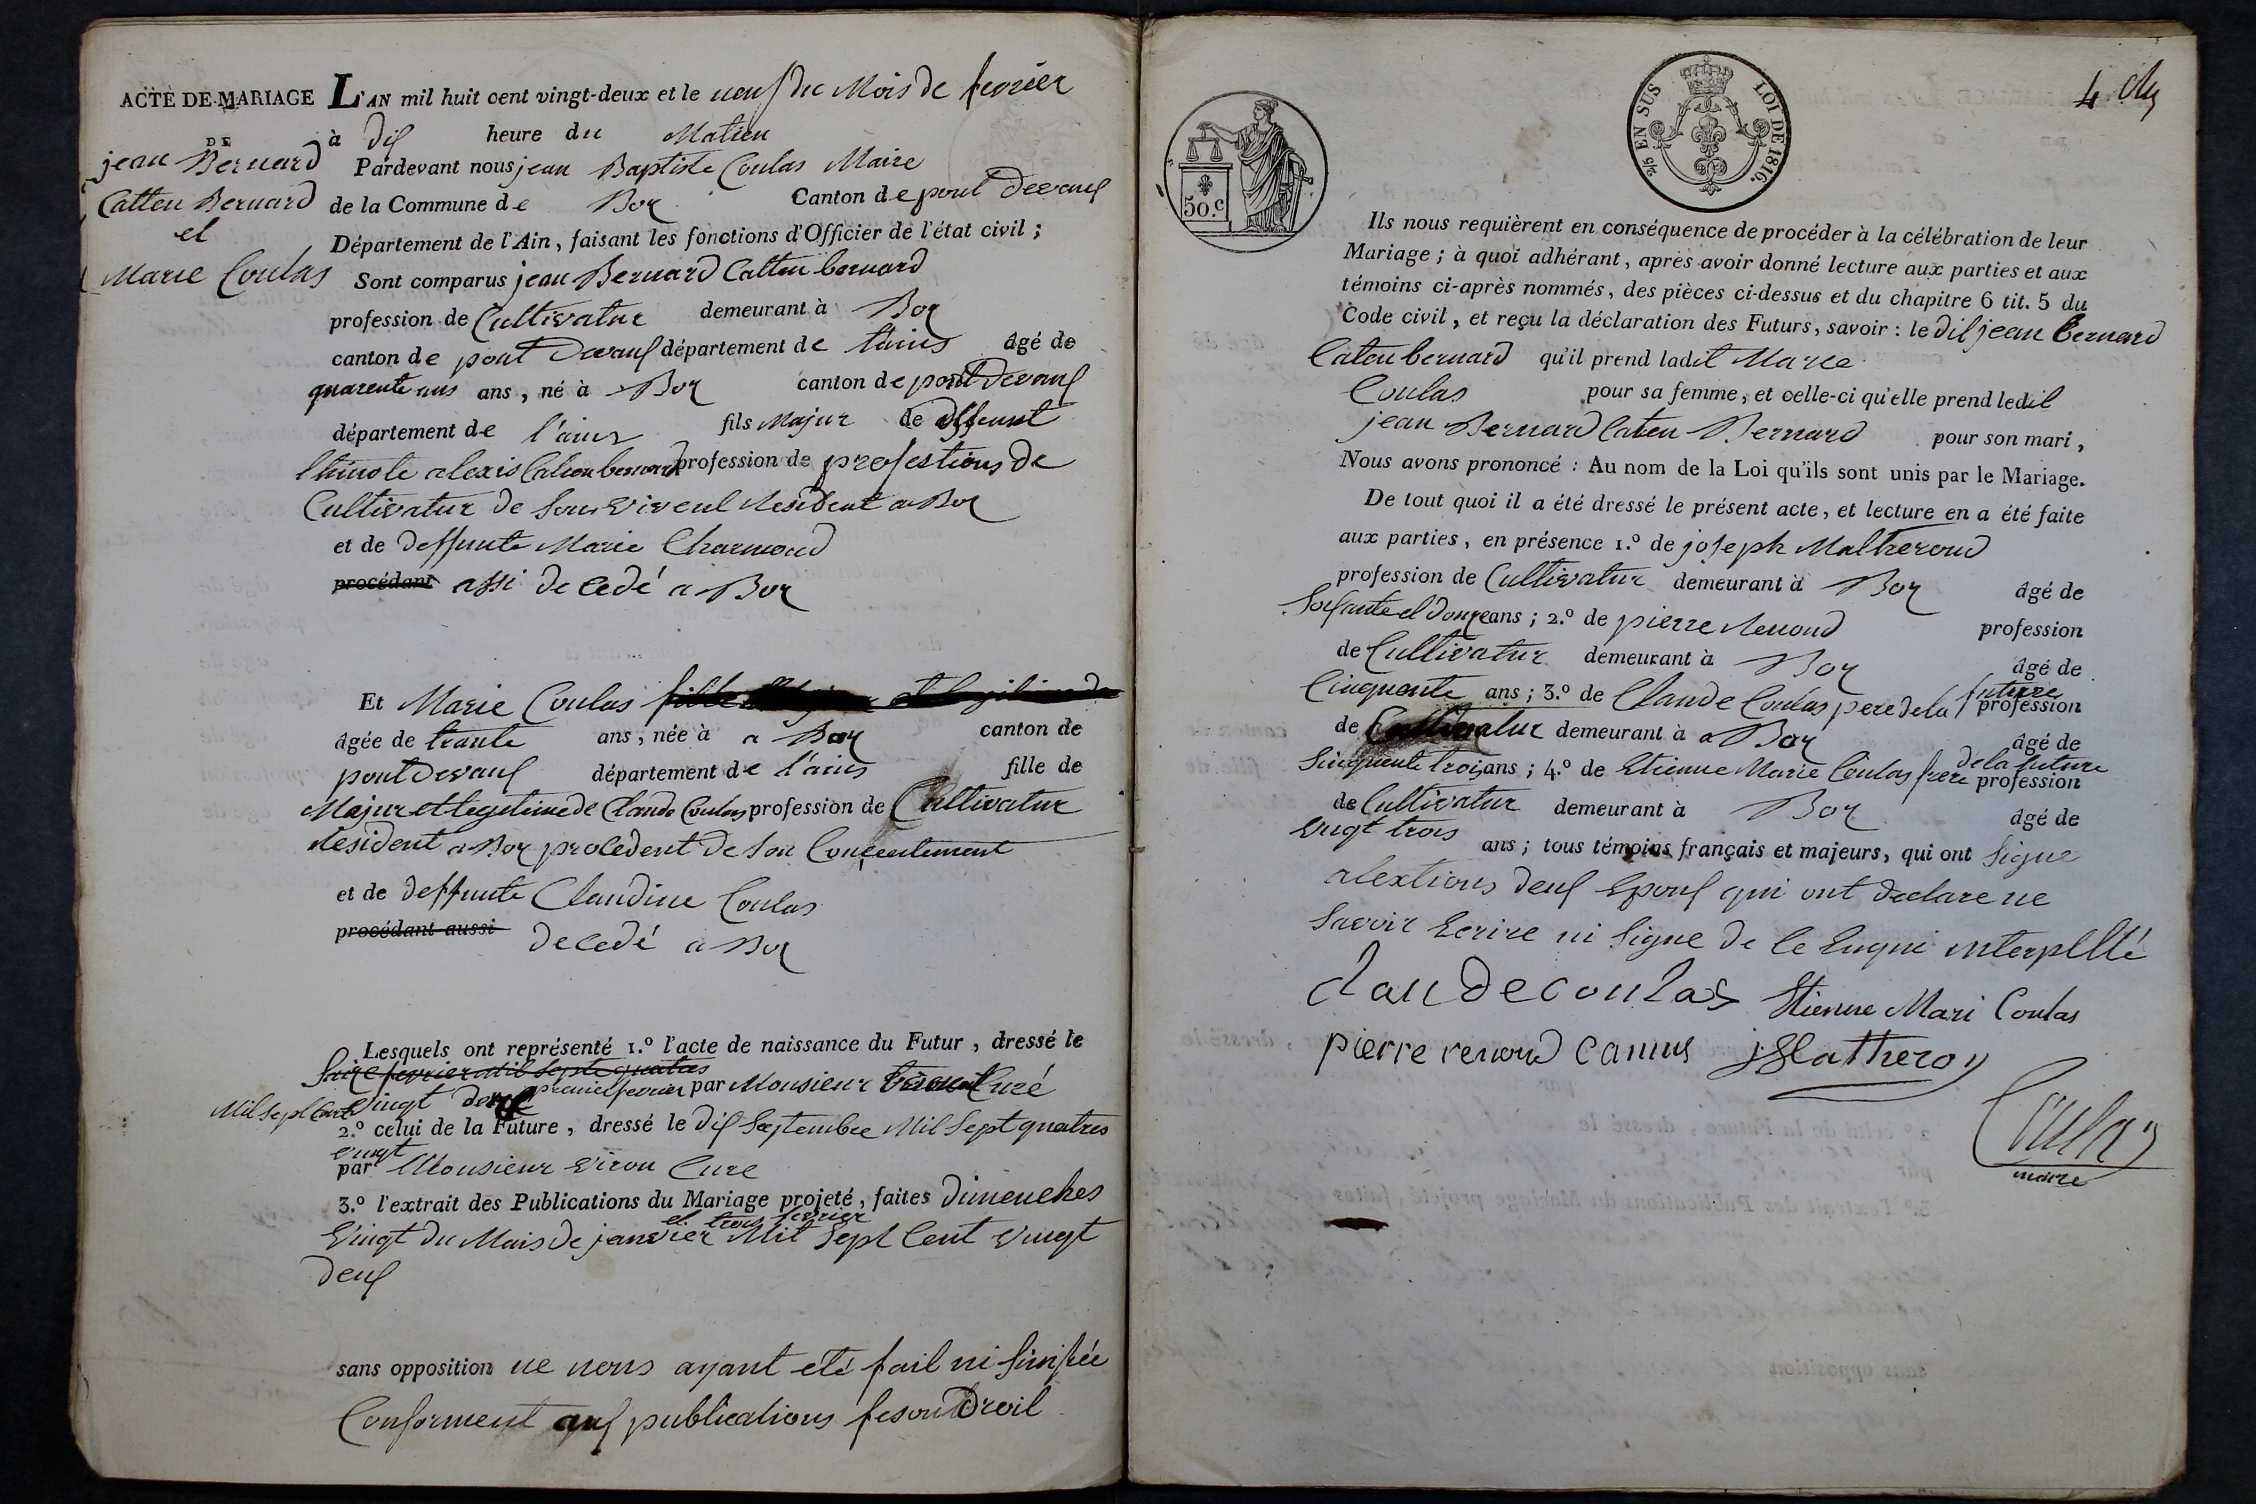 ACTE DE MARIAGE
DE
jean Bernard
Catteu Bernard
et
Marie Coulas
L'AN mil huit cent vingt-deux et le neuf du Mois de fevrier
à dis heure du Matien
Pardevant nous jean Baptiste Coulas Maire
de la Commune de Boz Canton de pont Devaux
Département de l'Ain, faisant les fonctions d'Officier de l'état civil ;
Sont comparus jean Bernard Catteu bernard
profession de Cultivatur demeurant à Boz
canton de pont Devaux département de âgé de
quarente ans ans, né à Boz canton de pont Devaux
département de l'ains fils Majur de deffeunt
alexis Catteu bernard profession de profestions de
Cultivatur de Son viveul Resident a Boz
et de deffunte Marie Charmond
procédant assi decedé a Boz
Et Marie Coulas fille
âgée de trante ans, née à a Boz canton de
pont Devaux département de l'ains fille de
Majur et legetime de Claude Coulas profession de Cultivatur
Resident a Boz procedent de Son Concentement
et de deffunte Claudine Coulas
procédant aussi decedé a Boz
Lesquels ont représenté 1.º l'acte de naissance du Futur, dressé le
Saize fevrier mil septe quatas
Mil Sept Cent vingt deux premier fevrier par Monsieur Curé
2.º celui de la Future, dressé le dis Septembre Mil Sept quatres
vingt
par Monsieur viron Cure
3.º l'extrait des Publications du Mariage projeté, faites dimenches
et trois fevrier
Vingt du Mais de janvier Mil Sept Cent vingt
deux
sans opposition ne nous ayant eté fait ni Sinifiée
Conforment aux publications fesont Droit
4
50.c
2/5 EN SUS
LOI DE 1816.
Ils nous requièrent en conséquence de procéder à la célébration de leur
Mariage ; à quoi adhérant, après avoir donné lecture aux parties et aux
témoins ci-après nommés, des pièces ci-dessus et du chapitre 6 tit. 5 du
Code civil, et reçu la déclaration des Futurs, savoir : le dit jean Bernard
Cateu bernard qu'il prend ladit Marie
Coulas pour sa femme, et celle-ci qu'elle prend ledit
jean Bernard Cateu Bernard pour son mari,
Nous avons prononcé : Au nom de la Loi qu'ils sont unis par le Mariage.
De tout quoi il a été dressé le présent acte, et lecture en a été faite
aux parties, en présence 1.º de joseph Matheroud
profession de Cultivatur demeurant à Boz âgé de
Soisante et douze ans ; 2.º de pierre Renoud profession
de Cultivatur demeurant à Boz âgé de
future
Cinquente ans ; 3.º de Claude Coulas pere de la profession
de Cultivatur demeurant à a Boz âgé de
de la future
Sinquente trois ans ; 4.º de Etienne Marie Coulas frere profession
de Cultivatur demeurant à Boz âgé de
vingt trois ans ; tous témoins français et majeurs, qui ont Signe
alextions deux Epoux qui ont declare ne
Savoir Ecrire ni Signe de Ce Enqui interpellé
claude coulas Etienne Mari Coulas
pierre renoud camus j Matheron
Coulas
maire